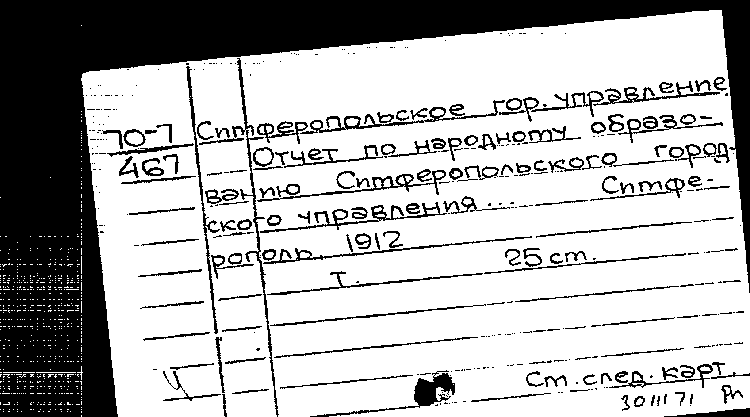 70-7 Симферопольское гор. управление
467 Отчет по народному образо-
ванию Симферопольского город-
ского управления... Симфе-
рополь. 1912
т. 25 cm.
Ст. след. карт.
30 III 71